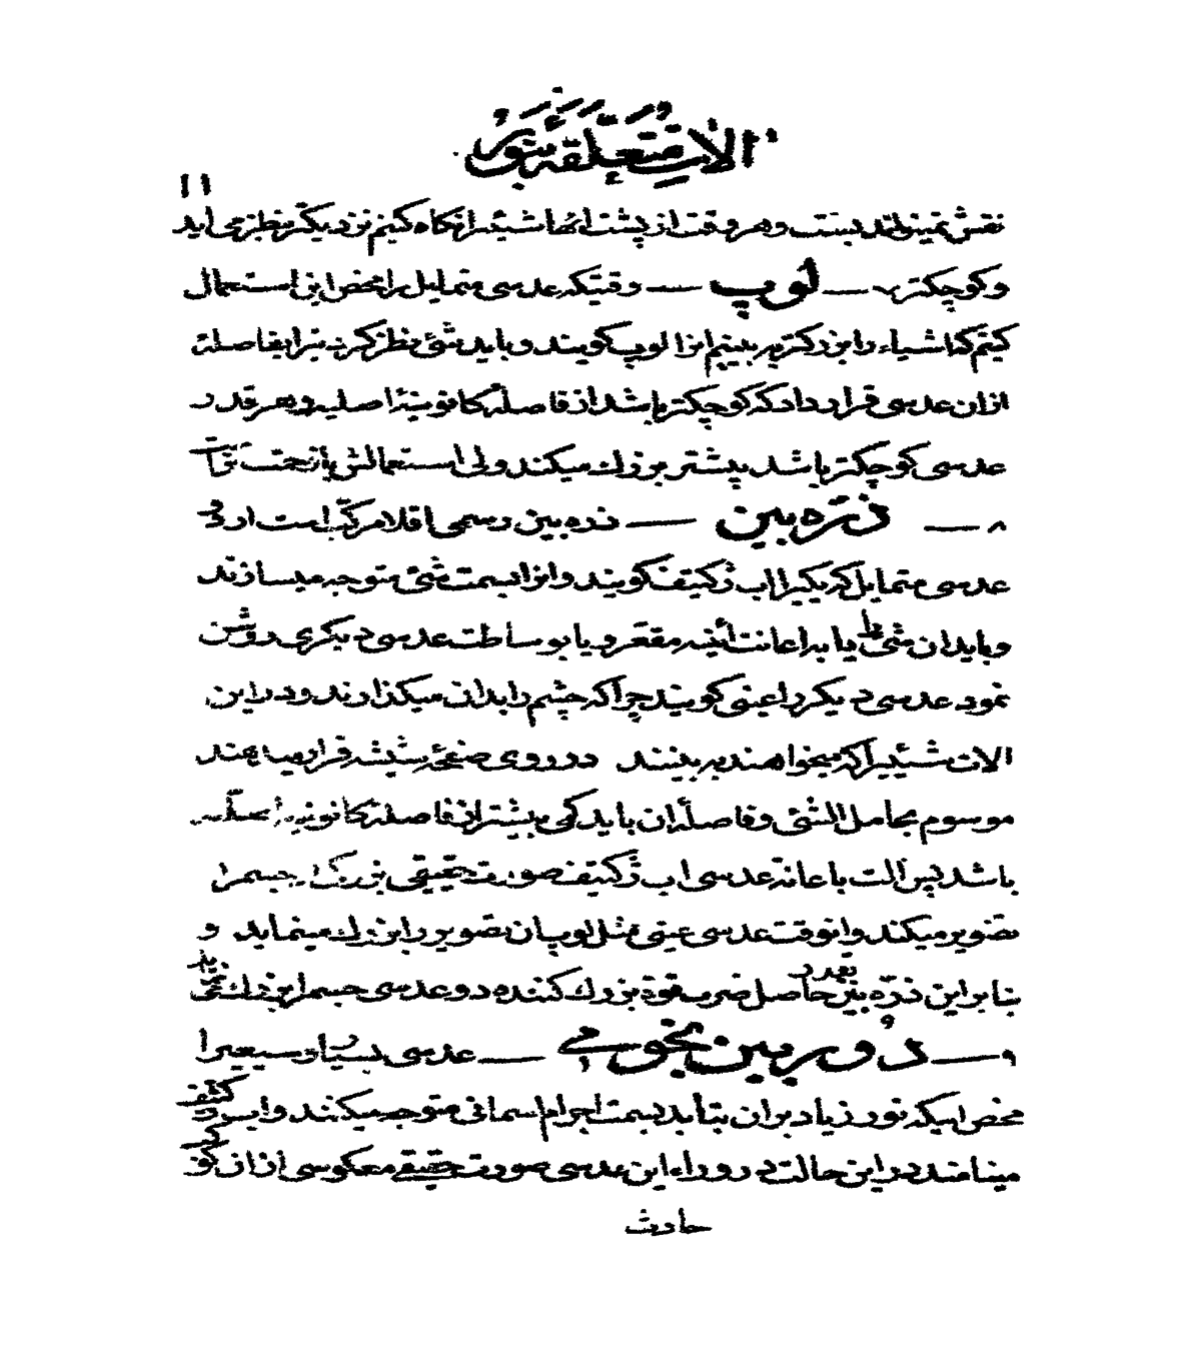 الات متعلّقه بنور
١١
نقش نمیتواند بست و هر وقت از پشت انها شیئی را نگاه کنیم نزدیکتر بنظر می اید
و کوچکتر ٧ — لوپ — وقتیکه عدسی متمایل را محض این استعمال
کنیم که اشیاء را بزرکتر به بینیم انرا لوپ کویند و باید شئ نظر کرده را بفاصلهٔ
ازان عدسی قرار داد که کوچکتر باشد از فاصلهٔ کانونیهٔ اصلیه و هر قدر
عدسی کوچکتر باشد بیشتر بزرك میکند ولی استعمالش بازحمت تر
٨ — ذرّه بین — ذره بین رسمی اقلا مرکّب است از دو
عدسی متمایل که یکیرا اب ژکتیف کویند و انرا بسمت شئ متوجه میسازند
و باید ان شئ را یا به اعانت أئینه مقعر و یا بوساطت عدسی دیکری روشن
نمود عدسی دیکر را عینی کویند چرا که چشم را بدان میکذارند و در این
الات شیئیرا که میخواهند به بینند در روی صفحهٔ شیشه قرار میدهند
موسوم بحامل الشئ و فاصلهٔ ان باید کمی بیشتر از فاصلهٔ کانونیه اصلیه
باشد پس الت باعانهٔ عدسی اب ژکتیف صورت حقیقی بزرك از جسم را
تصویر میکند و انوقت عدسی عینی مثل لوپ ان تصویر را بزرك مینماید و
بنابراین ذرّه بین بقدر حاصل ضرب قوهٔ بزرك کننده دو عدسی جسم را بزرك می نماید
٩ — دوربین نجومی — عدسی بسیار وسیعیرا
محض اینکه نور زیاد بران بتابد بسمت اجرام اسمانی متوجه میکنند و اب ژکتیف
مینامند در این حالت در وراء این عدسی صورت حقیقی معکوسی از ان کوکب
حادث